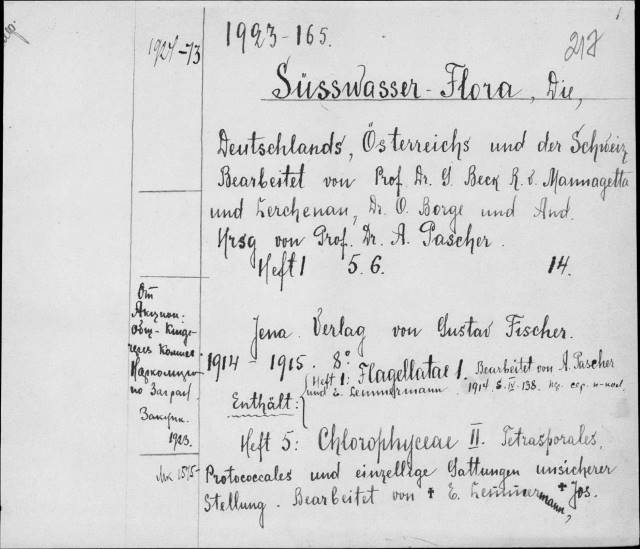 1.
1924-73
1923-165.
217
Süsswasser-Flora, Die,
Deutschlands, Österreichs und der Schweiz
Bearbeitet von Prof. Dr. G. Beck R. v. Mannagetta
und Lerchenau, Dr. O. Borge und And.
Hrsg von Prof. Dr. A. Pascher.
Heft 1 5. 6. 14.
От
Акцион.
общ-
через
Наркомпро
по Загран.
Закупк.
1923.
Jena. Verlag von Gustav Fischer.
1914 - 1915. 8°
Enthält:
Heft 1: Flagellatae 1. Bearbeitet von A. Pascher
und E. Lemmermann. 1914 S. IV-138.
Heft 5: Chlorophyceae II. Tetrasporales,
Protococcales und einzellige Gattungen unsicherer
Stellung. Bearbeitet von † E. Lemmermann, † Jos.